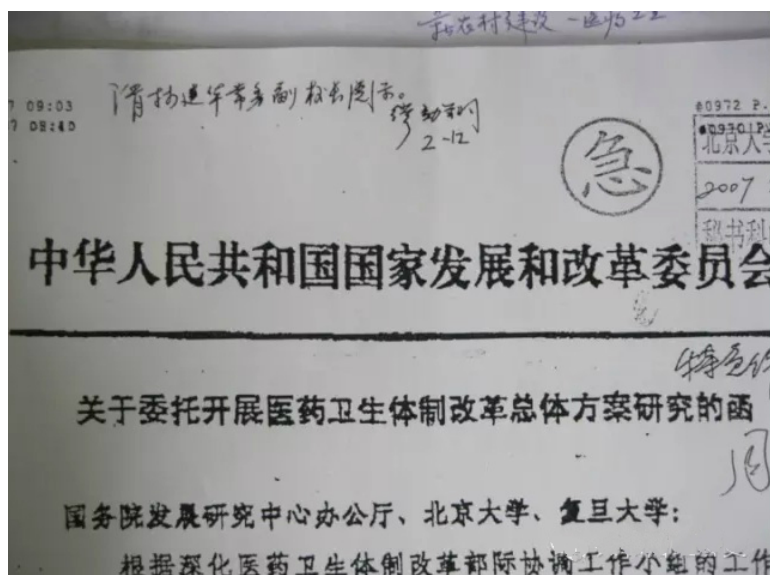 新农村建设 — 医药卫生
09:03
请柯杨建华常务副校长阅示。
08:40
2-12
急
60972 P.
北京大学
2007
秘书科
中华人民共和国国家发展和改革委员会
特急件
关于委托开展医药卫生体制改革总体方案研究的函
周
国务院发展研究中心办公厅、北京大学、复旦大学：
根据深化医药卫生体制改革部际协调工作小组的工作